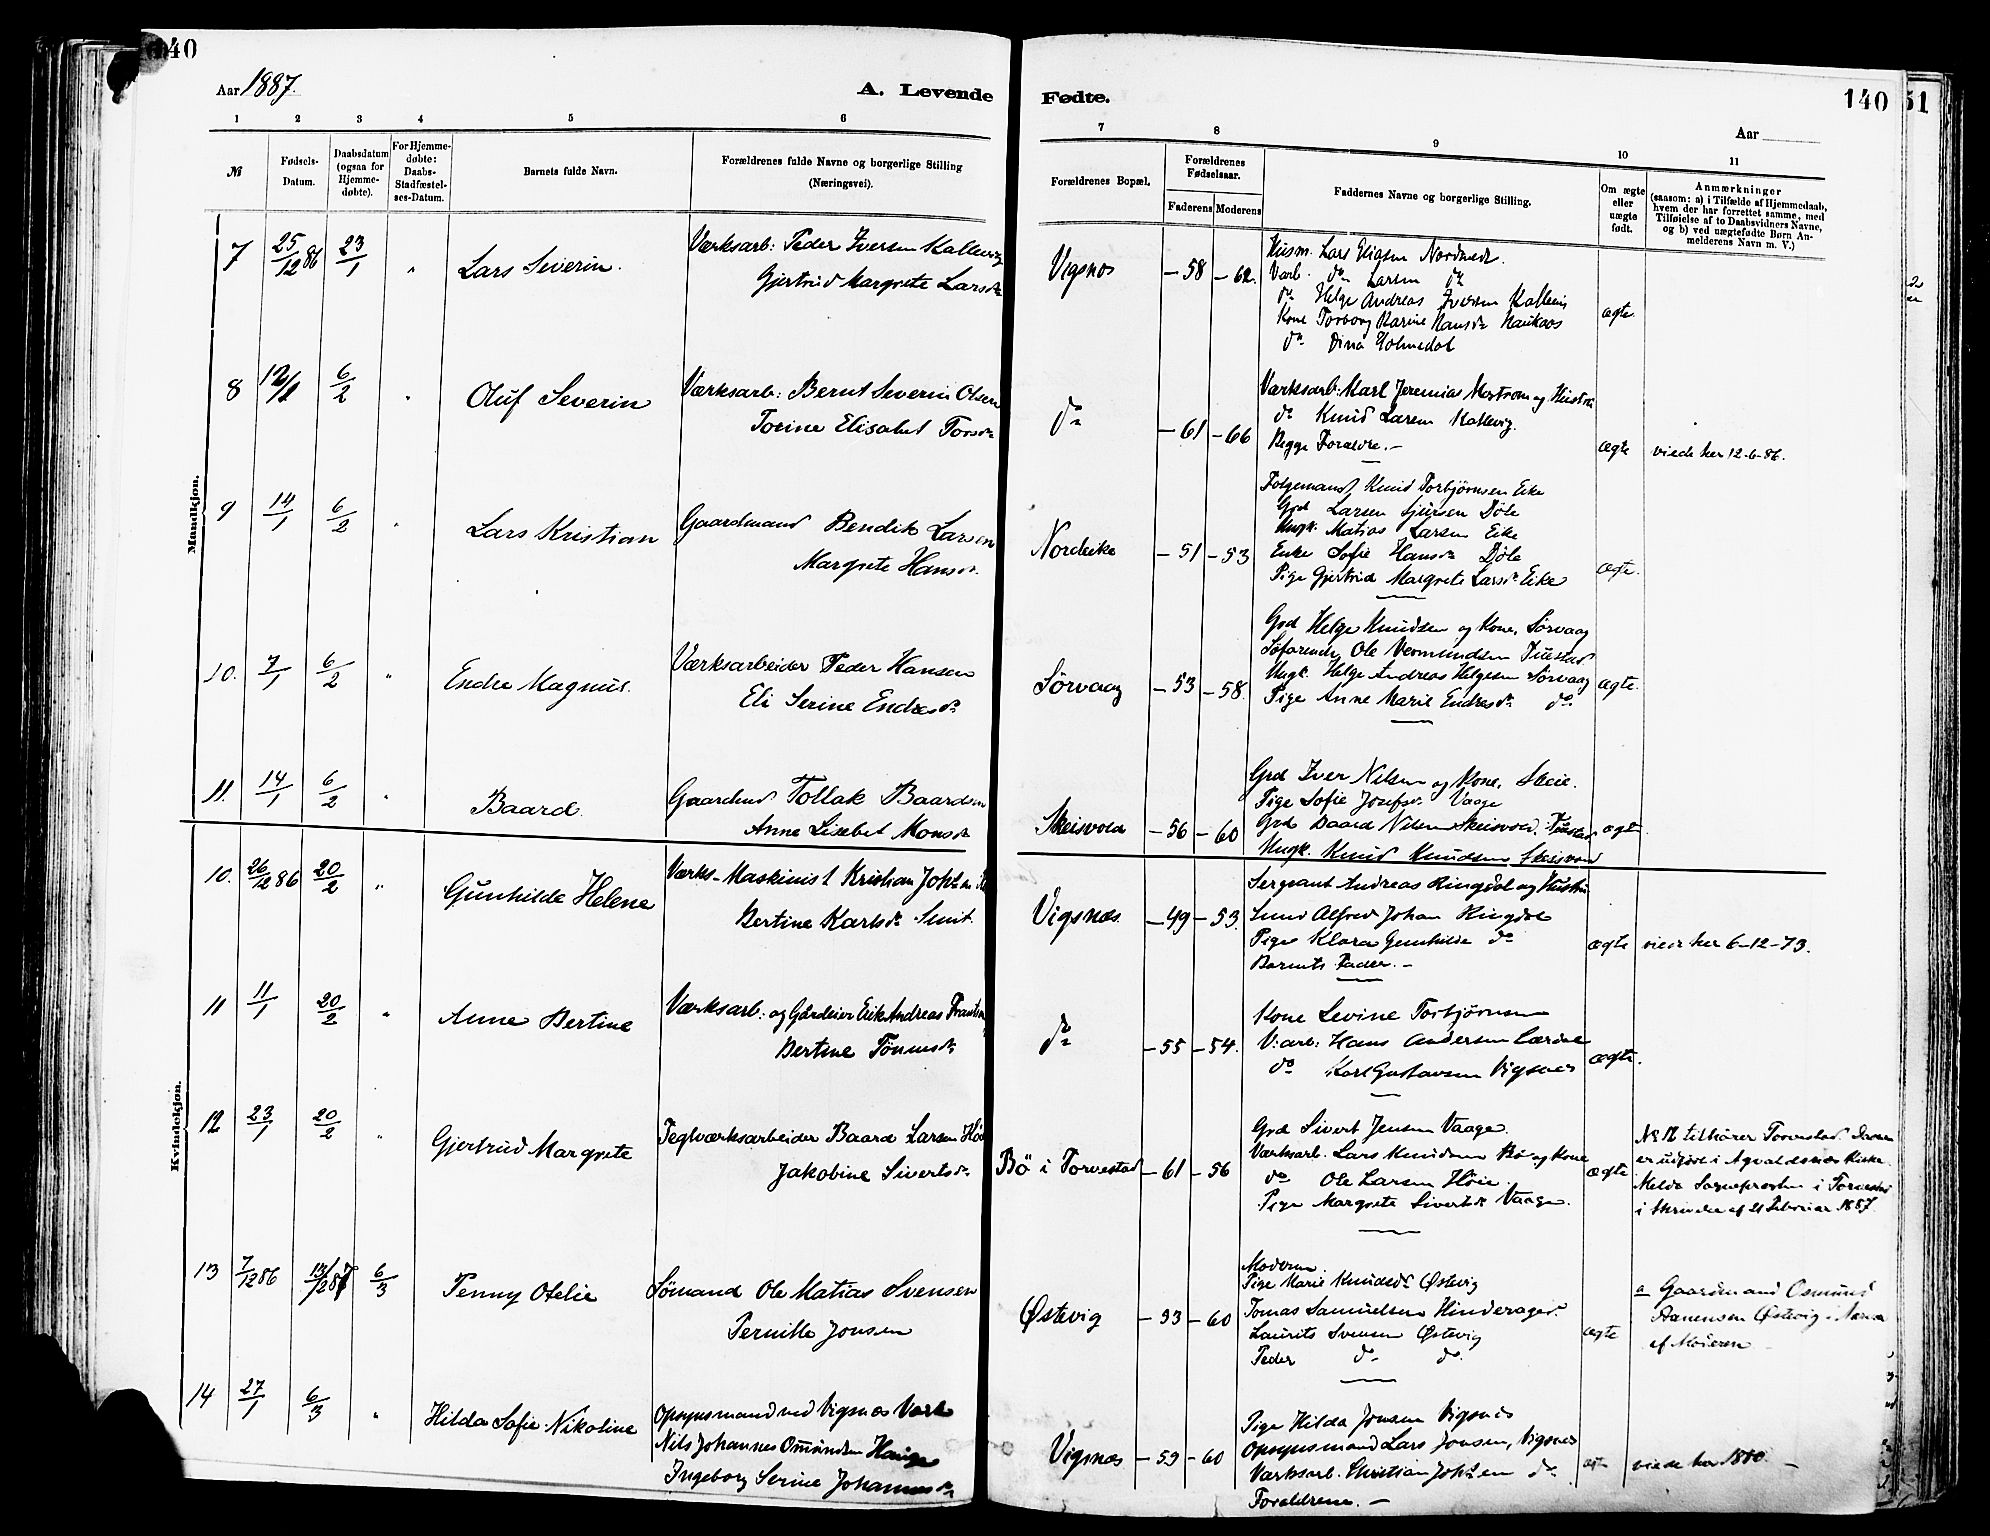 140
Aar 1887.
A. Levende
Fødte.
140
51
Aar
1 2 3 4 5 6
7 8 9 10 11
№
Fødsels-Datum.
Daabsdatum (ogsaa for Hjemme-døbte).
For Hjemme-døbte: Daabs-Stadfæstel-ses-Datum.
Barnets fulde Navn.
Forældrenes fulde Navne og borgerlige Stilling (Næringsvei).
Forældrenes Bopæl.
Forældrenes Fødselsaar.
Faderens Moderens
Faddernes Navne og borgerlige Stilling.
Om ægte eller uægte født.
Anmærkninger (saasom: a) i Tilfælde af Hjemmedaab, hvem der har forrettet samme, med Tilføielse af to Daabsvidners Navne, og b) ved uægtefødte Børn An-melderens Navn m. V.)
Mandkjøn.
7 25/12 86 23/1 " Lars Severin.
Værksarb: Peder Iversen Kallevig
Gjertrud Margrete Larsdr
Vigsnæs - 58 - 62.
Husm. Lars Eliasen
Varb. do Larsen do
do Helge Andreas Iversen Kallevig
Kone Torborg Karine Hansdr
do Dina Holmedal
ægte.
8 12/1 6/2 " Oluf Severin
Værksarb: Bernt Severin Olsen
Torine Elisabet Torsdr
do - 61 - 66
Værksarb: Karl Jeremias og Hustru
do Knud Larsen Kallevig.
Begge Forældre. -
ægte
viede her 12-6-86.
9 14/1 6/2 " Lars Kristian
Gaardmand Bendik Larsen
Margrete Hansdr.
Nordeike - 51 - 53
Folgemand Knud Torbjørnsen Eike
Grd Larsen Sjursen Døle
Ungk. Matias Larsen Eike
Enke Sofie Hansdr Døle
Pige Gjertrud Margrete Larsdr Eike
ægte.
10. 7/1 6/2 " Endre Magnus.
Værksarbeider Peder Hansen
Eli Serine Endresdr
Sørvaag - 53 - 58.
Grd Helge Knudsen og Kone, Sørvaag
Søfarende Ole Vermundsen
Ungk. Helge Andreas Helgesen Sørvaag
Pige Anne Marie Endresdr do.
ægte.
11. 14/1 6/2 " Baard.
Gaardmd Tollak Baardsen
Anne Lisebet Monsdr
Skeisvold - 56 - 60
Grd Iver Nilsen og Kone, Skeie.
Pige Sofie Josefsdr Vaage
Grd Baard Nilsen Skeisvold.
Ungk. Knud Knudsen Skeisvold
ægte
Kvindekjøn.
10. 26/12 86 20/2 " Gunhilde Helene
Værks-Maskinist Kristian
Bertine Karlsdr Smit.
Vigsnæs. - 49 - 53.
Sergeant Andreas Ringdal og Hustru
Smed Alfred Johan Ringdal
Pige Klara Gunhilde do
Barnets Fader. -
ægte
viede her 6-12-73.
11 11/1 20/2 " Anne Bertine
Værksarb: og Gårdeier Erik Andreas
Bertine Tønnesdr
do - 55 - 54.
Kone Levine Torbjørnsen
V:arb: Hans Andersen
do Karl Gustavsen Vigsnæs
ægte.
12 23/1 20/2 " Gjertrud Margrete
Teglværksarbeider Baard Larsen
Jakobine Sivertsdr
Bö i Torvestad - 61 - 56
Grd Sivert Jensen Vaage.
Værksarb. Lars Knudsen Bø og Kone
do Ole Larsen Høie.
Pige Margrete Sivertsdr Vaage.
ægte
№ 12 tilhører Torvestad. Daaben
er udført i Avaldsnæs Kirke.
Meldt Sogneprosten i Torvestad
i Skrivelse af 21 Februar 1887.
13 7/12 86 6/3 Penny Otelie
Sømand Ole Matias Svensen
Pernille Jonsen
Østevig - 53 - 60
Moderen.
Pige Marie Knudsdr Østevig
Tomas Samuelsen Hinderager.
Laurits Svensen Østevig
Peder do do.
ægte
a Gaardmand Osmund
Aanensen Østevig i Nærvær
af Moderen
14 27/1 6/3 " Hilda Sofie Nikoline
Opsynsmand ved Vigsnæs Værk
Nils Johannes Omundsen Hauge
Ingeborg Serine Johannesdr
Vigsnæs - 59 - 60
Pige Hilda Jonsen Vigsnæs
Opsynsmand Lars Jonsen, Vigsnæs
Værksarb. Christian do
Forældrene. -
viede her 1880. -